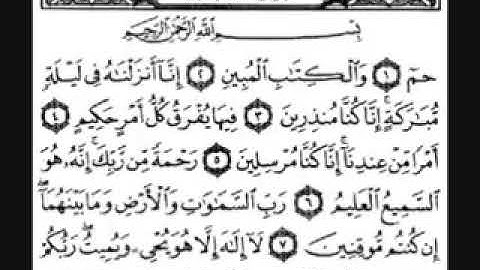 بِسْمِ اللَّهِ الرَّحْمَٰنِ الرَّحِيمِ
حمٓ ١ وَالْكِتَابِ الْمُبِينِ ٢ إِنَّا أَنزَلْنَاهُ فِي لَيْلَةٍ
مُّبَارَكَةٍ ۚ إِنَّا كُنَّا مُنذِرِينَ ٣ فِيهَا يُفْرَقُ كُلُّ أَمْرٍ حَكِيمٍ ٤
أَمْرًا مِّنْ عِندِنَا ۚ إِنَّا كُنَّا مُرْسِلِينَ ٥ رَحْمَةً مِّن رَّبِّكَ ۚ إِنَّهُ هُوَ
السَّمِيعُ الْعَلِيمُ ٦ رَبِّ السَّمَاوَاتِ وَالْأَرْضِ وَمَا بَيْنَهُمَا ۖ
إِن كُنتُم مُّوقِنِينَ ٧ لَا إِلَٰهَ إِلَّا هُوَ يُحْيِي وَيُمِيتُ ۖ رَبُّكُمْ